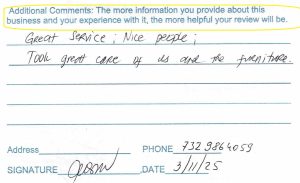 Additional Comments: The more information you provide about this
business and your experience with it, the more helpful your review will be.
Great Service; Nice people;
Took great care of us and the furniture.
Address
PHONE 732 986 4059
SIGNATURE
DATE 3/11/25